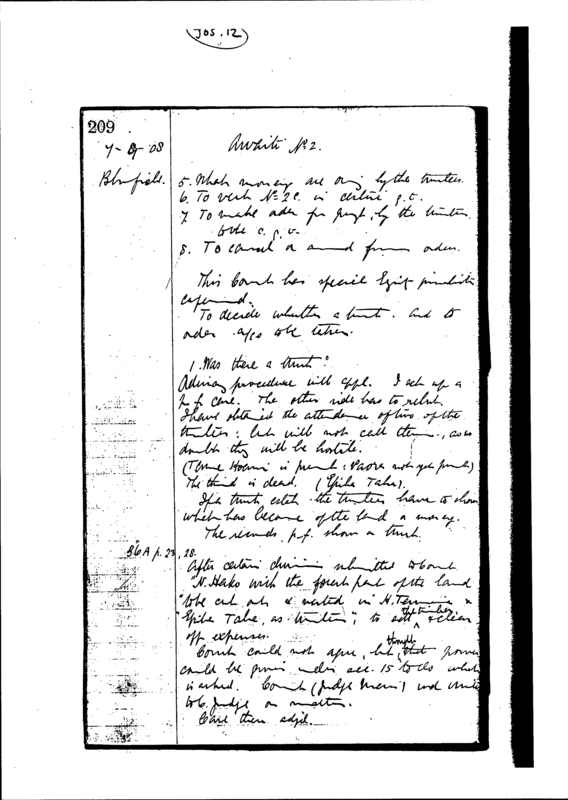 JOS. 12
209
7- 8- 08
Awaiti No 2.
Blomfield.
5. What moneys are owing by the trustees.
6. To vest No 2C. in certain
7. To make order for payt. by the trustees
to the
8. To cancel or amend former orders.
This Court has special Equity jurisdiction
To decide whether a trust. and to
order a/cs to be taken.
1. Was there a trust?
procedure will apply. I set up a
p.f. case. The other side has to rebut.
I have obtained the attendance of two of the
trustees: but will not call them, as no
doubt they will be hostile.
Hoani is present: Paora not yet present)
The third is dead. (Epiha Taha).
If a trust estab. the trustees have to show
what has become of the land & money.
The records p.f. show a trust.
36A p. 23, 28.
After certain divisions submitted to Court
"N. Hako wish the forest part of the land
"to be cut out & vested in H. &
"Epiha Taha, as trustees", to sell the timber & clear
off expenses.
Court could not agree, but thought that power
could be given under sec. 15 to do what
is asked. Court (Judge Mair) wd write
to C. Judge on matter.
Case then adjd.